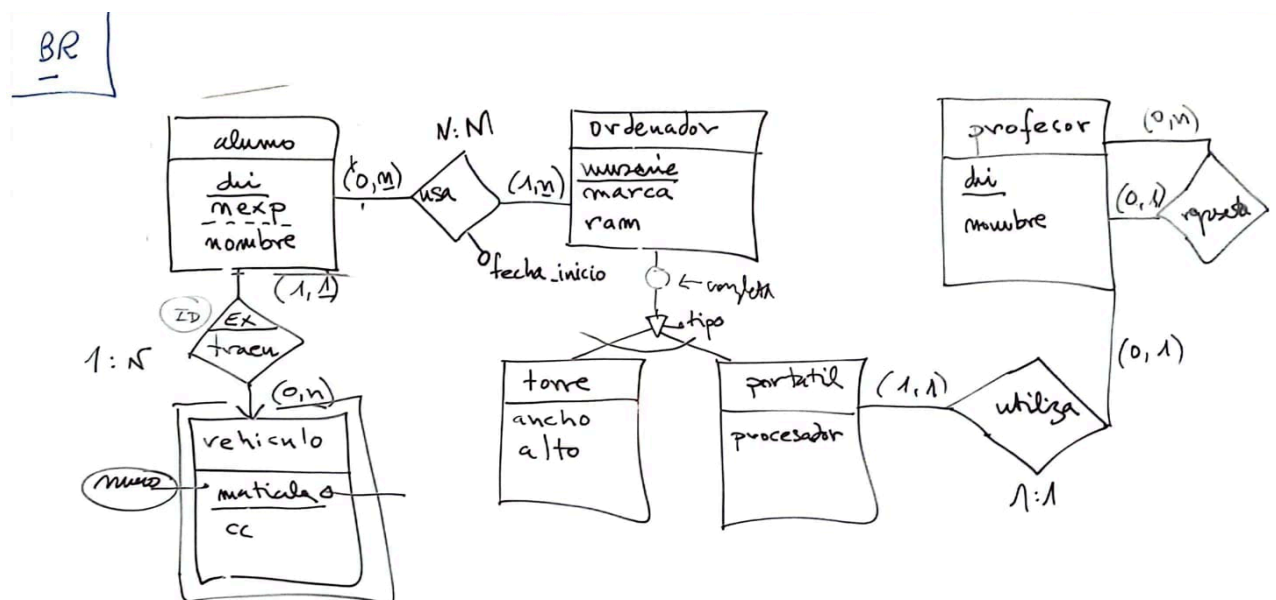 BR
alumno
dni
nexp
nombre
(0,n)
N:M
usa
fecha_inicio
(1,n)
ordenador
numserie
marca
ram
← completa
tipo
torre
ancho
alto
portatil
procesador
(1,1)
utiliza
1:1
(0,1)
profesor
dni
nombre
(0,n)
(0,1)
(1,1)
ID
EX
traen
1:N
(0,n)
vehiculo
matricula
cc